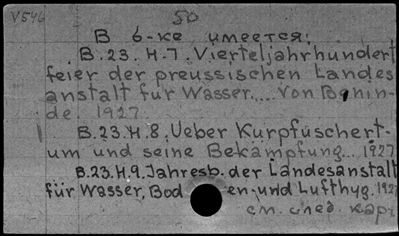 V546
50
В б-ке имеется:
B.23. H.7. Vierteljahrhundert
feier der preussischen Landes
anstalt für Wasser.... Von Bonin-
de. 1927
B.23.H.8. Ueber Kurpfuschert-
um und seine Bekämpfung... 1927
B.23.H.9. Jahresb. der Landesanstalt
für Wasser, Bod en-und Lufthyg. 1927
см. след. карт